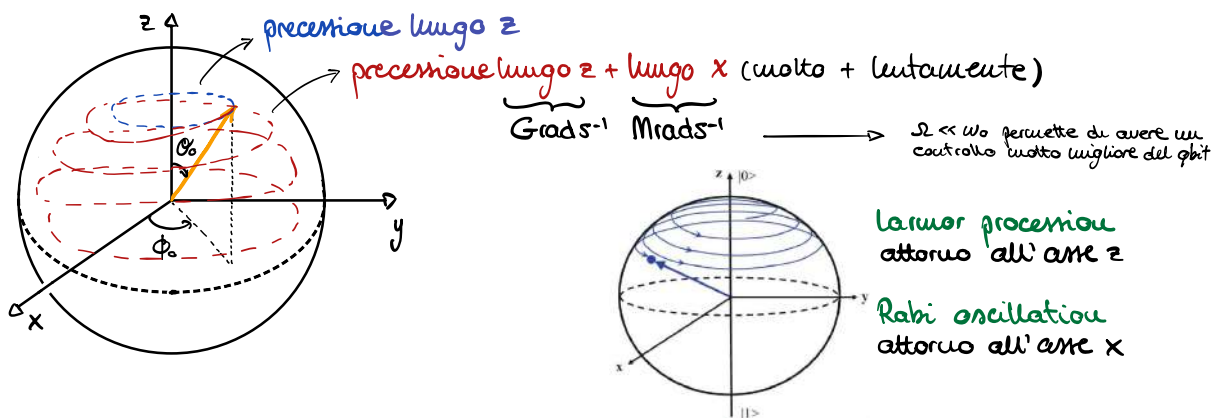 z
precessione lungo z
precessione lungo z + lungo x (molto + lentamente)
Grad s⁻¹ Mrad s⁻¹
Ω << ω₀ permette di avere un
controllo molto migliore del qbit
θ₀
y
ϕ₀
x
z |0⟩
y
x
|1⟩
Larmor procession
attorno all'asse z
Rabi oscillation
attorno all'asse x